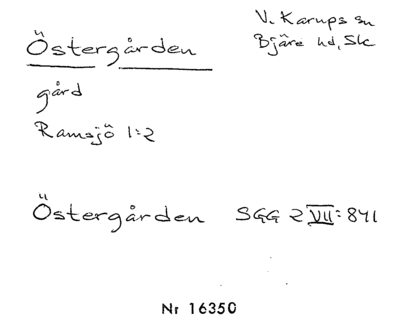 Östergården
V. Karups sn
Bjäre hd, Sk
gård
Ramsjö 1:2
Östergården SGG 2 VII: 841
Nr 16350